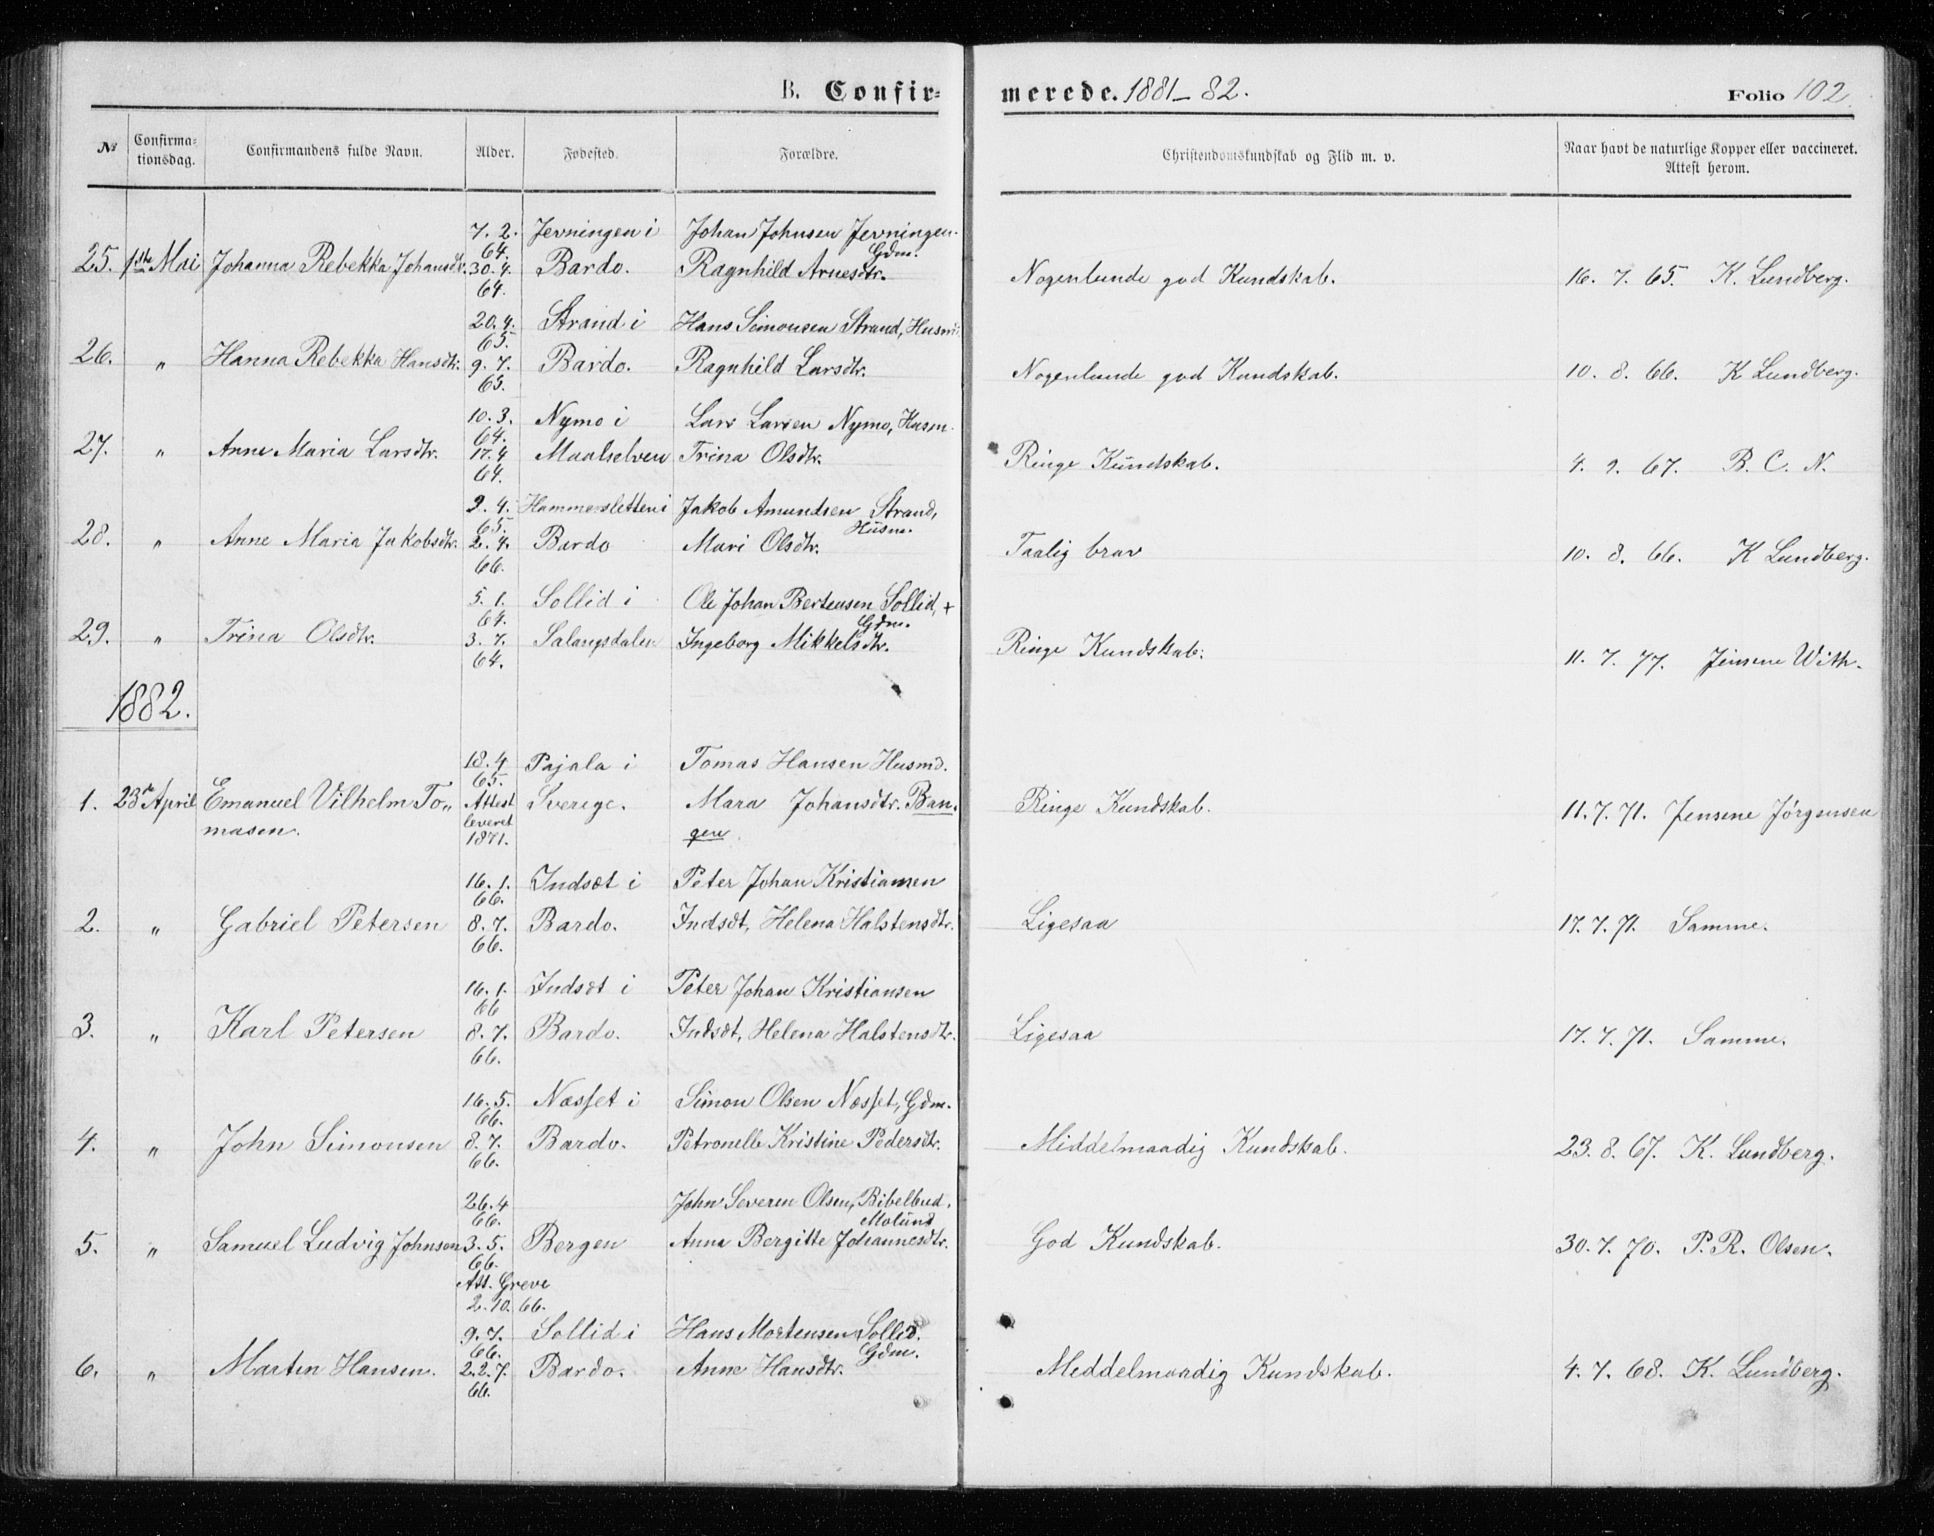 B. Confir-merede. 1881-82. Folio 102.
No Confirmationsdag. Confirmandens fulde Navn. Alder. Fødested. Forældre. Christendomskundskab og Flid m. v. Naar havt de naturlige Kopper eller vaccineret. Attest herom.
7. 2. Jevningen i Johan Johnsen Jevningen.
64. Gdm.
25. 1ste Mai Johanna Rebekka Johansdtr. 30. 4. Bardo. Ragnhild Arnesdtr. Nogenlunde god Kundskab. 16. 7. 65. K. Lundberg.
64.
20. 4. Strand i Hans Simonsen Strand, Husm.
65.
26. " Hanna Rebekka Hansdtr. 9. 7. Bardo. Ragnhild Larsdtr. Nogenlunde god Kundskab. 10. 8. 66. K Lundberg.
65.
10. 3. Nymo i Lars Larsen Nymo, Husm.
64.
27. " Anne Maria Larsdtr. 17. 4 Maalselven Trina Olsdtr. Ringe Kundskab. 4. 9. 67. B. C. N.
64.
2. 4. Hammersletten i Jakob Amundsen Strand,
65. Husm.
28. " Anne Maria Jakobsdtr. 2. 4. Bardo Mari Olsdtr. Taalig brav 10. 8. 66. K Lundberg.
66.
5. 1. Sollid i Ole Johan Bertensen Sollid, +
64. Gdm.
29. " Trina Olsdtr. 3. 7. Salangsdalen Ingeborg Mikkelsdtr. Ringe Kundskab. 11. 7. 77. Jensine With.
64.
1882.
18. 4 Pajala i Tomas Hansen Husmd.
65.
1. 23de April Emanuel Vilhelm To- Attest Sverige. Mara Johansdtr. Ban- Ringe Kundskab. 11. 7. 71. Jensine Jørgensen
masen. leveret gen.
1871.
16. 1. Indset i Peter Johan Kristiansen
66.
2. " Gabriel Petersen 8. 7. Bardo. Indset, Helena Halstensdtr. Ligesaa 17. 7. 71. Samme.
66.
16. 1. Indset i Peter Johan Kristiansen
66
3. " Karl Petersen 8. 7. Bardo. Indset, Helena Halstensdtr. Ligesaa 17. 7. 71. Samme.
66.
16. 5. Næsset i Simon Olsen Næsset, Gdm.
66.
4. " John Simonsen 8. 7. Bardo. Petronelle Kristine Pedersdtr. Middelmaadig Kundskab. 23. 8. 67. K. Lundberg.
66.
26. 4 John Severin Olsen, Bibelbud,
66. Molund
5. " Samuel Ludvig Johnsen 3. 5. Bergen Anna Bergitte Johannesdtr. God Kundskab. 30. 7. 70. P. R. Olsen.
66.
Att. Greve
2. 10. 66.
9. 7. Sollid i Hans Mortensen Sollid.
66. Gdm.
6. " Martin Hansen. 22. 7. Bardo. Anne Hansdtr. Middelmaadig Kundskab. 4. 7. 68. K. Lundberg.
66.